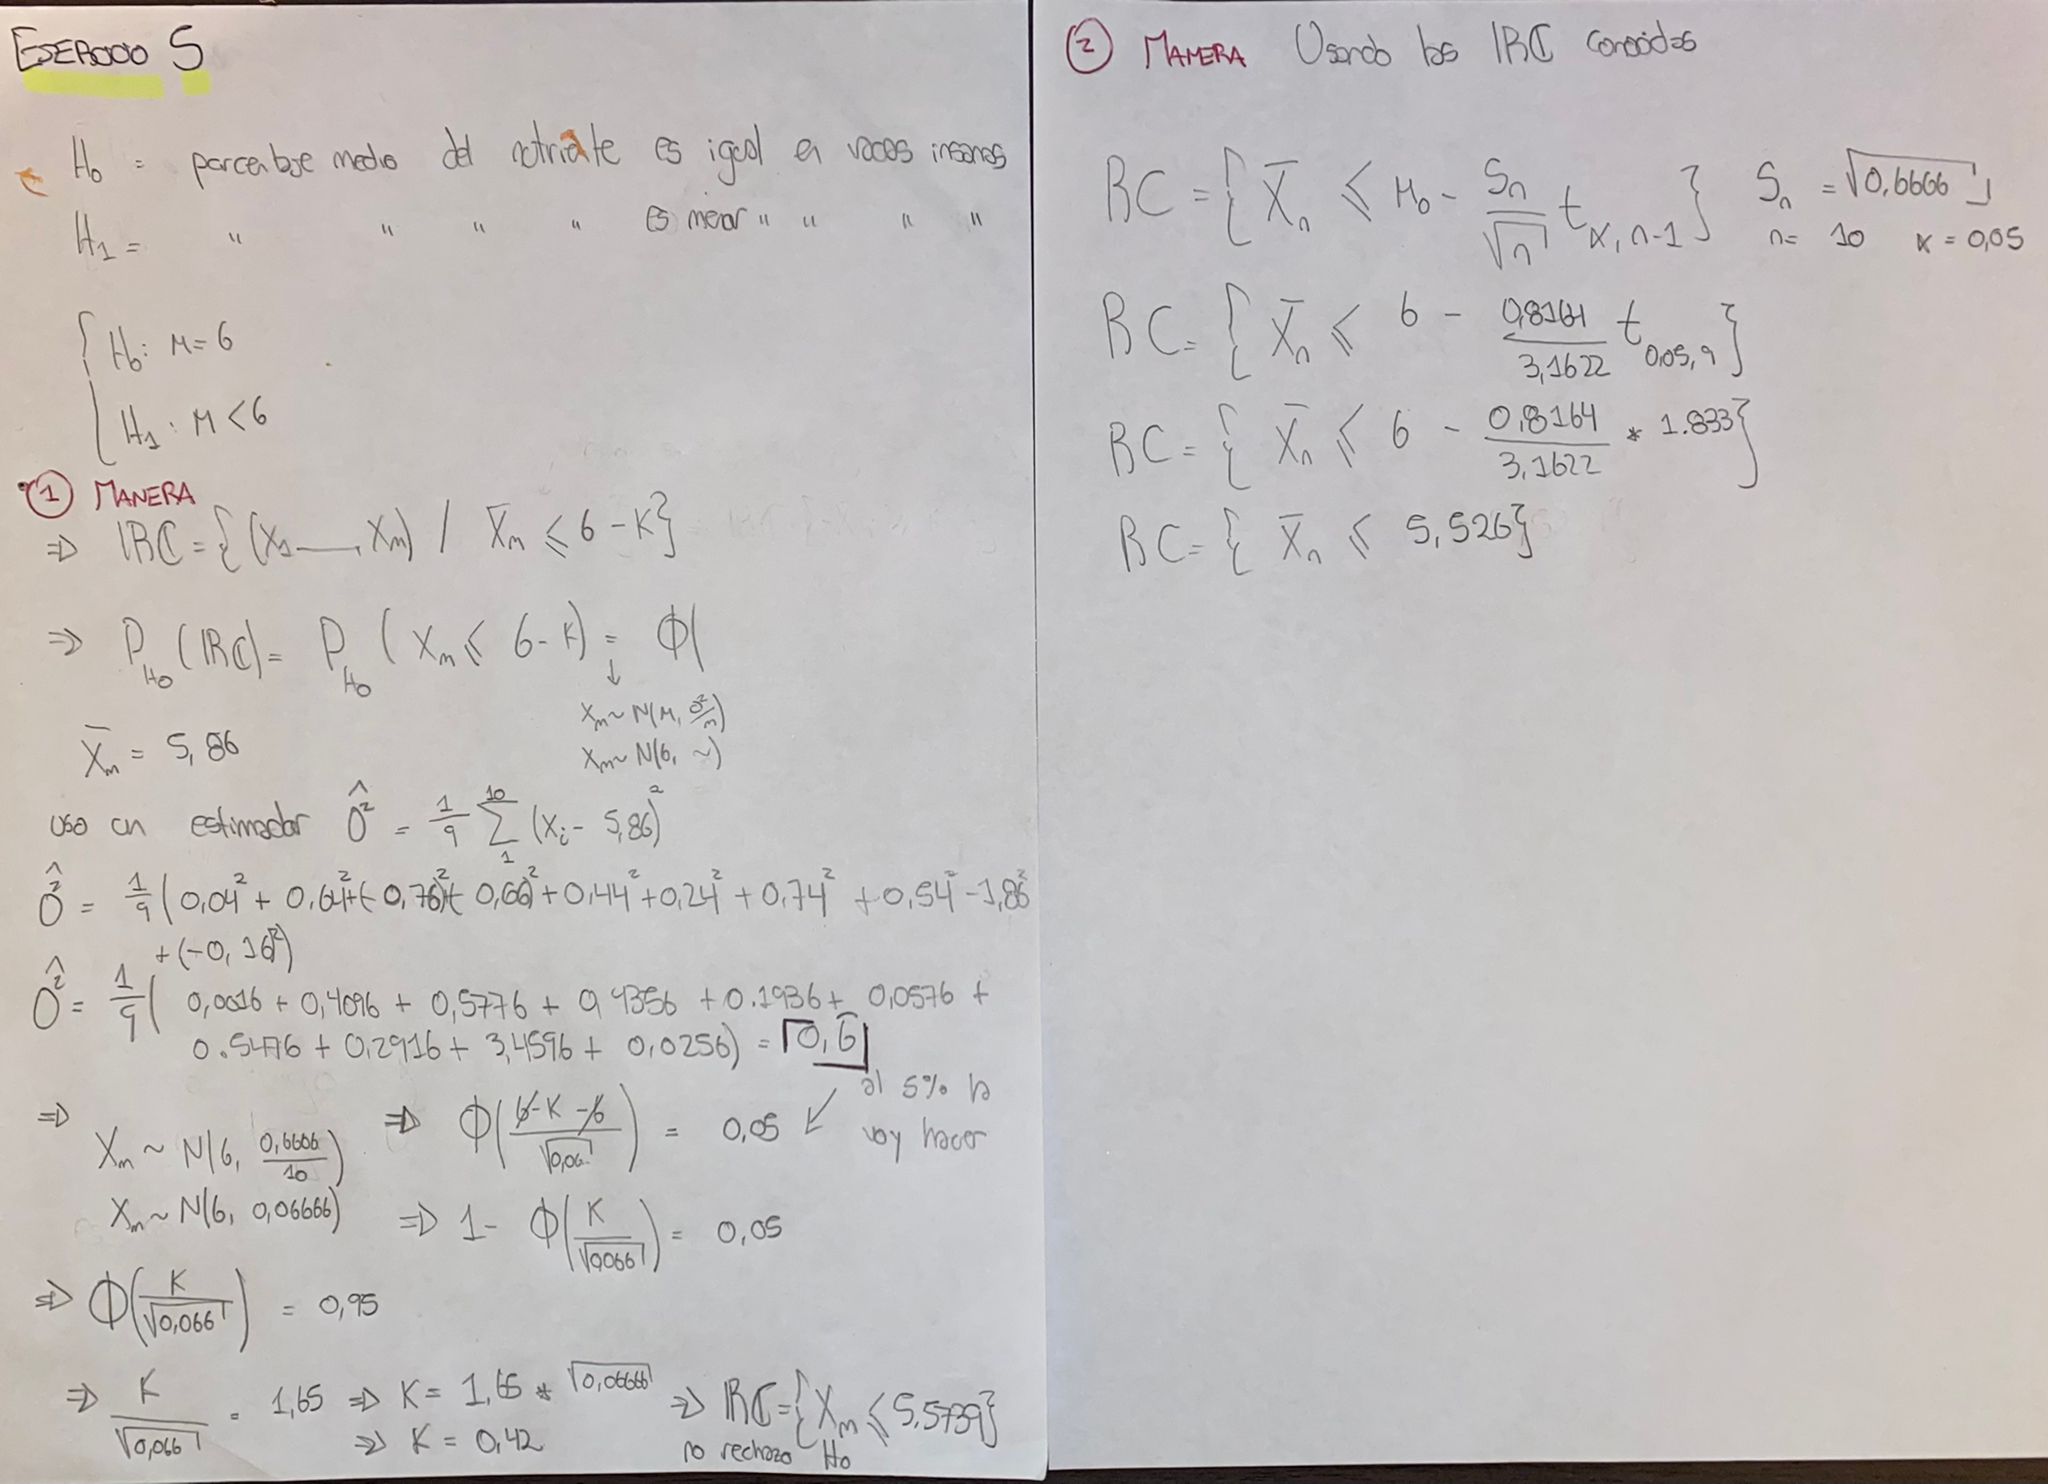 EJERCICIO 5
H0 = porcentaje medio del nutriente es igual en vacas insanas
H1 = " " " " es menor " " " "
{ H0: μ = 6
{ H1: μ < 6
① MANERA
⇒ RC = {(X1 —, Xm) / X̄m ⩽ 6 - K}
⇒ P_H0 (RC) = P_H0 (Xm ⩽ 6 - K) = Φ(
↓
Xm ~ N(μ, σ²/m)
Xm ~ N(6, ~)
X̄m = 5,86
uso un estimador σ̂² = 1/9 Σ_1^10 (Xi - 5,86)²
σ̂² = 1/9 (0,04² + 0,64² + (-0,76)² + (-0,66)² + 0,44² + 0,24² + 0,74² + 0,54² - 1,86²
+ (-0,16²)
σ̂² = 1/9 ( 0,0016 + 0,4096 + 0,5776 + 0,4356 + 0.1936 + 0,0576 +
0.5476 + 0,2916 + 3,4596 + 0,0256) = 0,6̄
al 5% lo
voy hacer
⇒ Xm ~ N(6, 0,6666/10) ⇒ Φ((6-K-6)/√0,06) = 0,05
Xm ~ N(6, 0,06666) ⇒ 1 - Φ(K/√0,066) = 0,05
⇒ Φ(K/√0,066) = 0,95
⇒ K/√0,066 = 1,65 ⇒ K = 1,65 * √0,06666 ⇒ RC = {Xm ⩽ 5,5739}
⇒ K = 0,42 no rechazo H0
② MANERA Usando las RC conocidas
RC = { X̄n ⩽ μ0 - Sn/√n t α, n-1 } Sn = √0,6666
n = 10 α = 0,05
RC = { X̄n ⩽ 6 - 0,8164/3,1622 t 0,05, 9 }
RC = { X̄n ⩽ 6 - 0,8164/3,1622 * 1.833 }
RC = { X̄n ⩽ 5,526 }